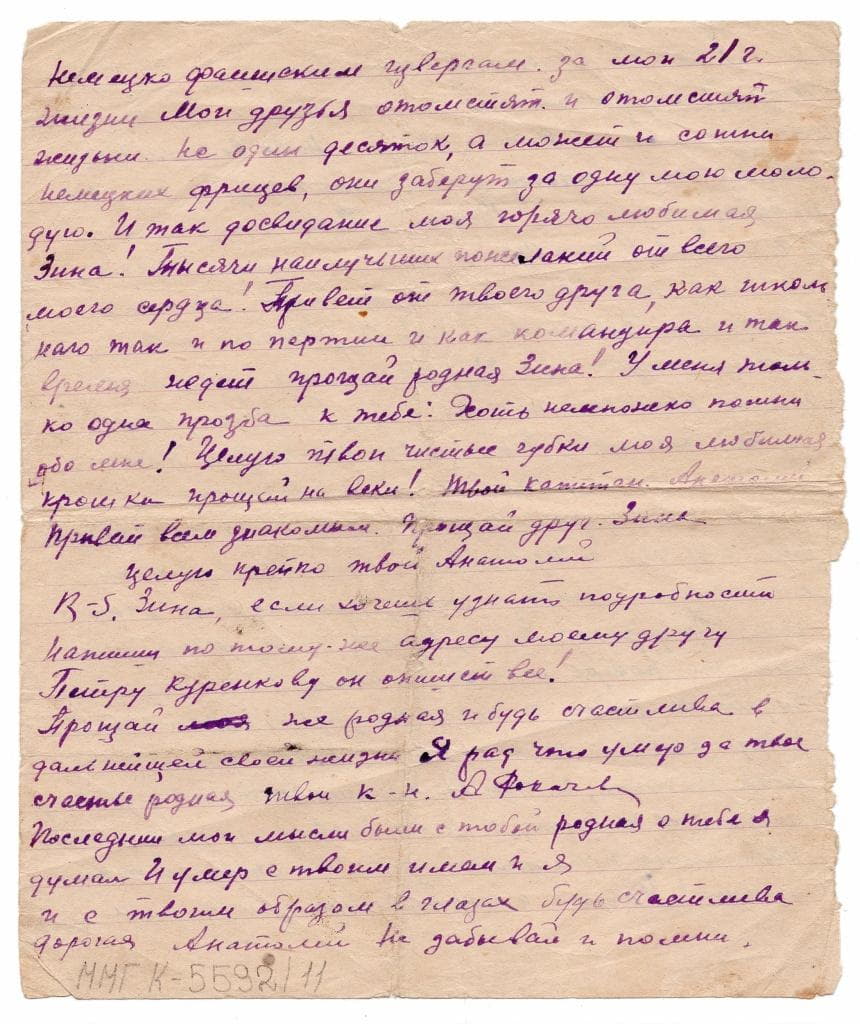 немецко фашистским извергам. за мои 21 г.
жизни Мои друзья отомстят. и отомстят
жизьни не один десяток, а может и сотни
немецких фрицев, они заберут за одну мою моло-
дую. И так досвидание моя горячо любимая
Зина! Тысячи наилучьших пожеланий от всего
моего сердца! Привет от твоего друга, как школь
наго так и по пертии и как командира и так
время недет прощай родная Зина! У меня толь-
ко одна прозба к тебе: Хоть немножко помни
обо мне! Целую твои чистые губки моя любимая
крошка прощай на веки! Твой капитан. Анатолий
Привет всем знакомым. Прощай друг. Зина
Целую крепко твой Анатолий
Зина, если хочешь узнать подробности
напиши по тому-же адресу моему другу
Петру Куренкову он опишет все!
Прощай моя же родная и будь счастлива в
дальнейшей своей жизни Я рад что умер за твое
счастье родная твой к-н. А
Последнии мои мысли были с тобой родная о тебе я
думал И умер с твоим имам и я
и с твоим образом в глазах будь счастлива
дорогая Анатолий Не забывай и помни.
ММГ К-5592/11